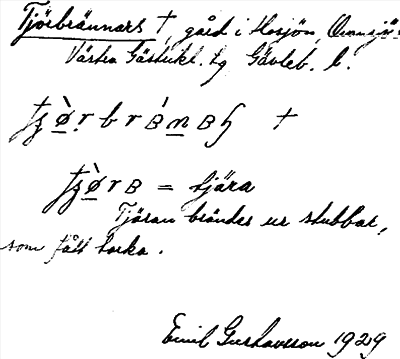 Tjörbrännars †, gård i Hosjön, Ovansjö s:n
Västra Gästrikl. tg Gävleb. l.
†
= tjära
Tjäran brändes ur stubbar,
som fått torka.
Emil Gustavsson 1929